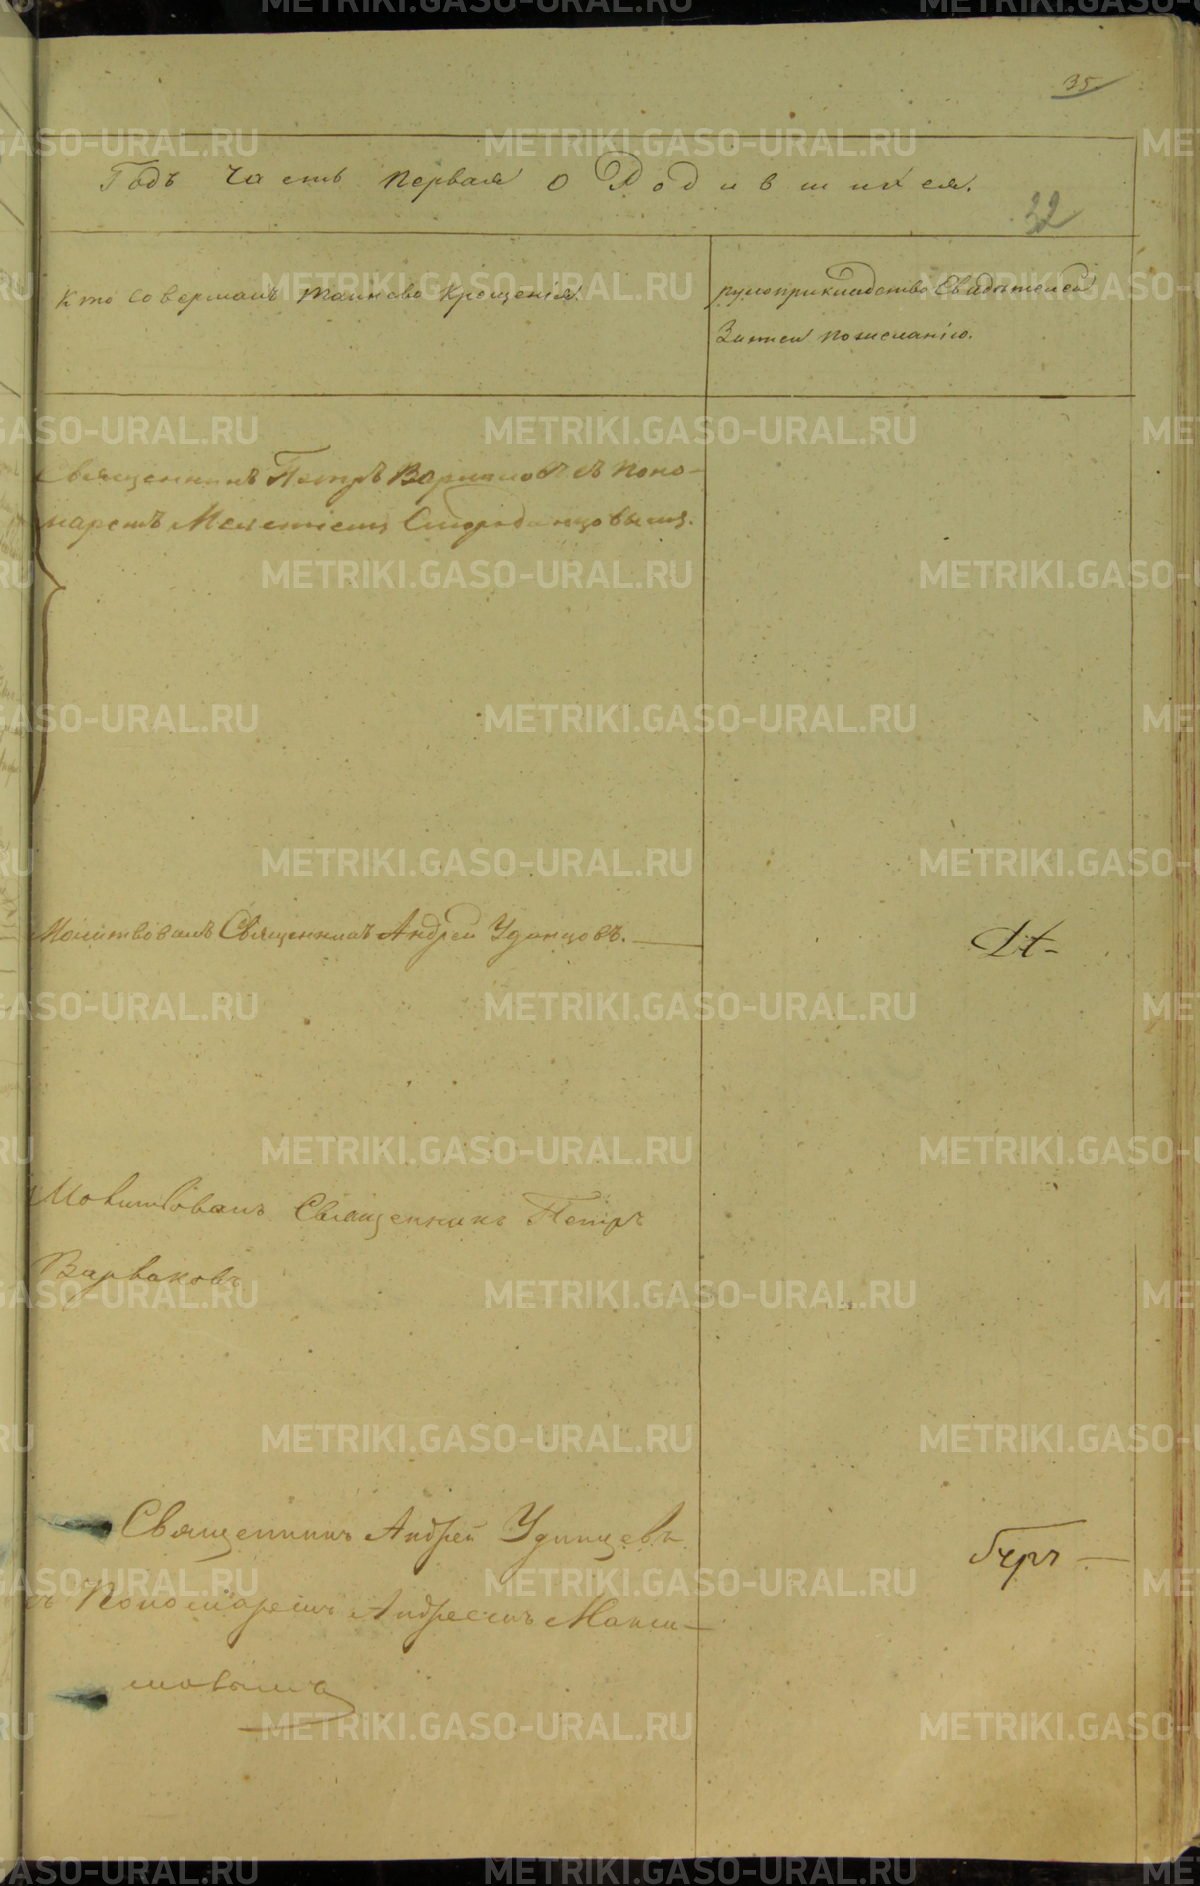 35
Годъ часть первая о Родившихся.
32
Кто совершалъ таинство крещенія.
рукоприкладство свидѣтелей
Записи по желанію.
Священникъ Петръ Варваковъ съ поно-
маремъ
Молитвовалъ Священникъ Андрей Удинцовъ.
Молитвовалъ Священникъ Петръ
Варваковъ
Священникъ Андрей Удинцевъ
съ Пономаремъ Андреемъ Макси-
мовымъ
METRIKI.GASO-URAL.RU